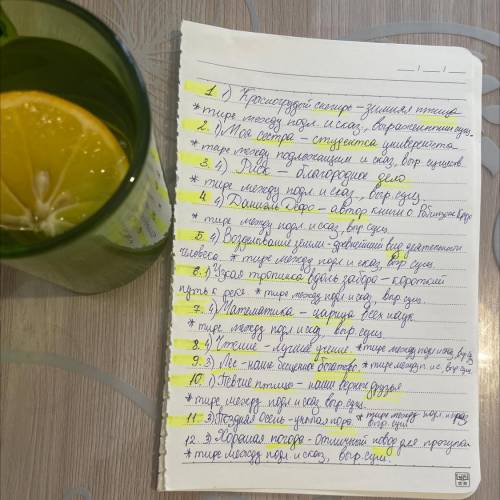 1. 1) Красногрудый снегирь – зимняя птица
* тире между подл. и сказ., выраженными сущ.
2. 1) Моя сестра – студентка университета
* тире между подлежащим и сказ, выр. существ.
3. 4) Риск – благородное дело
* тире между подл. и сказ., выр. сущ.
4. 4) Даниэль Дефо – автор книги о Робинзоне Крузо
* тире между подл. и сказ, выр. сущ.
5. 4) Возделывание земли – древнейший вид деятельности
человека. * тире между подл. и сказ, выр. сущ.
6. 1) Узкая тропинка вдоль забора – короткий
путь к реке. * тире между подл. и сказ, выр. сущ.
7. Математика – царица всех наук
* тире между подл. и сказ, выр. сущ.
8. 4) Чтение – лучшее учение. * тире между подл и сказ, выр. сущ
9. 3) Лес – наше бесценное богатство. * тире между п. и с. выр. сущ.
10. 1) Певчие птицы – наши верные друзья
* тире между подл. и сказ. выр. сущ.
11. 3) Поздняя осень – унылая пора * тире между подл. и сказ
выр. сущ.
12. 3) Хорошая погода – отличный повод для прогулки
* тире между подл. и сказ, выр. сущ.